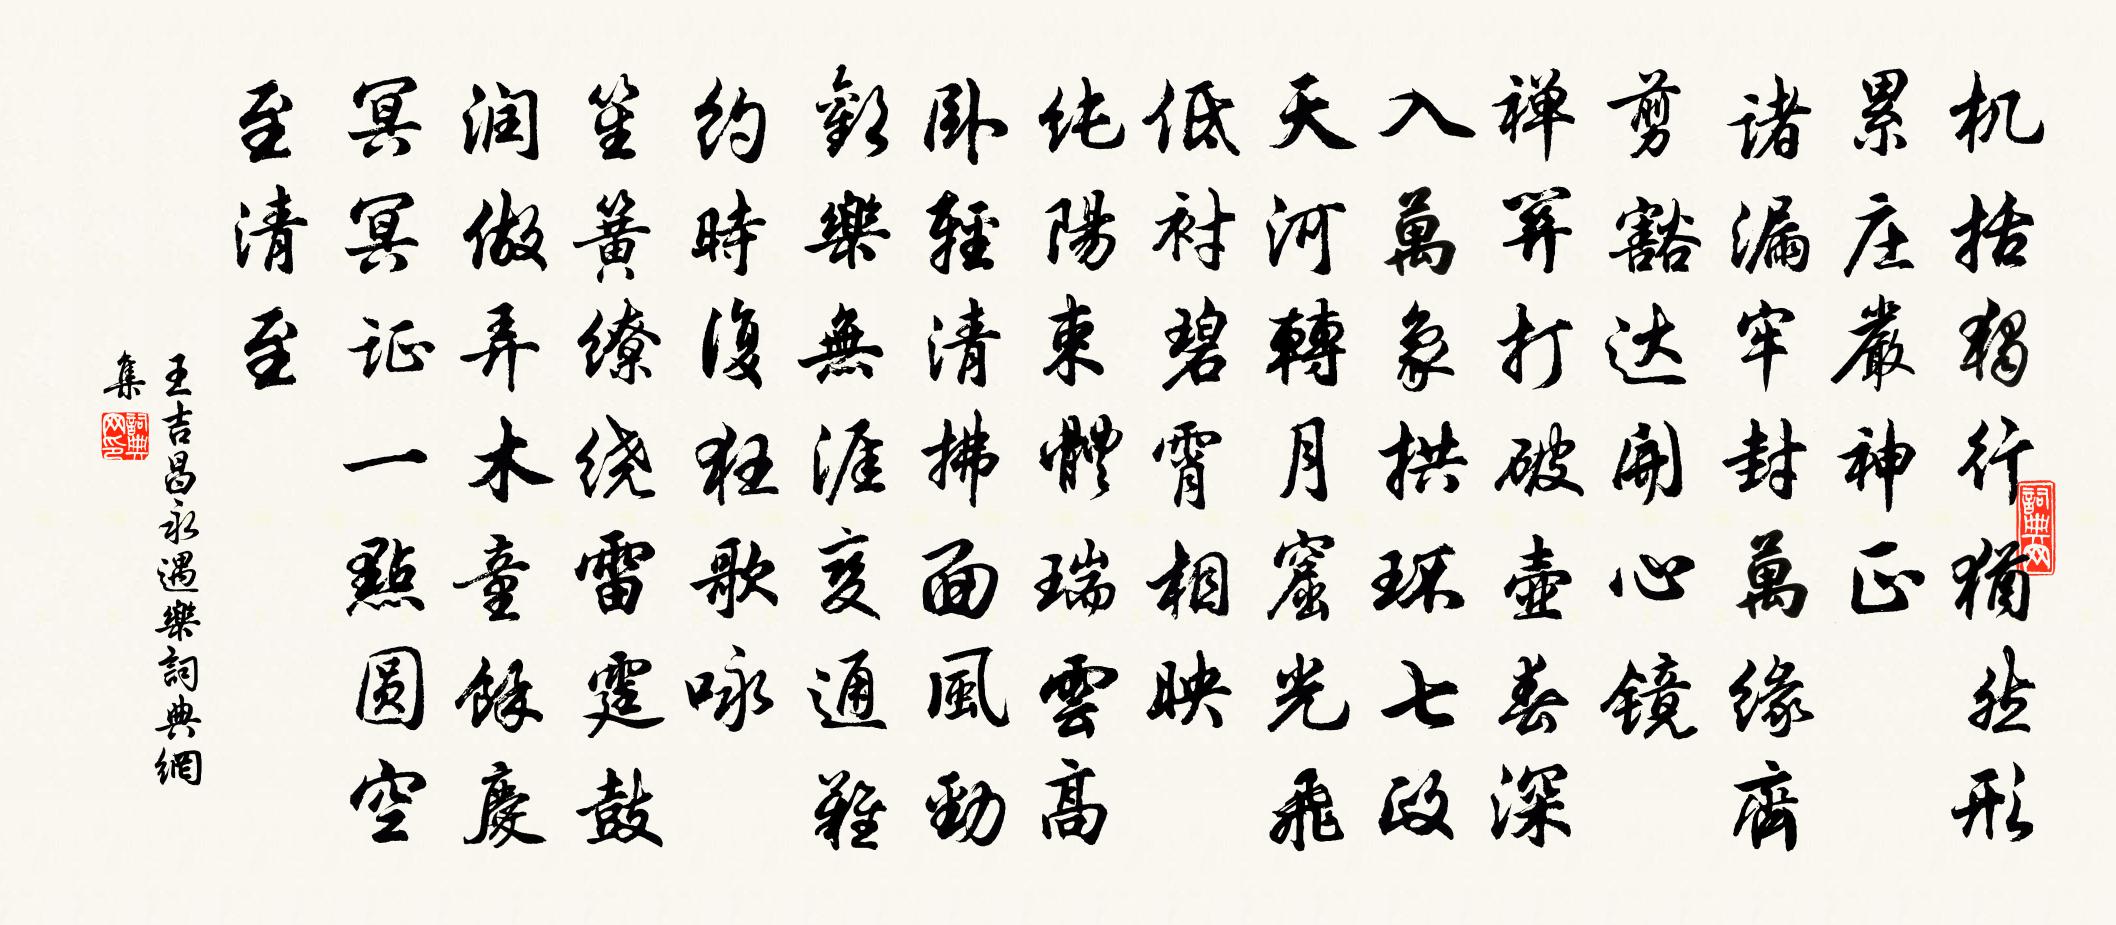 机括猖行猶然形
累庄嚴神正
诸漏牢封萬缘齊
剪豁达開心镜
禅關打破壺春深
入萬象拱琛七政
天河轉月窟光飛
低衬碧霄相映
纯陽東體瑞雲高
卧輕清拂面風勁
歡樂無涯变通難
約時復狂歌咏
笙簧缭绕雷霆鼓
润做弄木童餘慶
冥冥证一點圆空
至清至
王吉昌永遇樂詞典網
集
詞典网
詞典网印